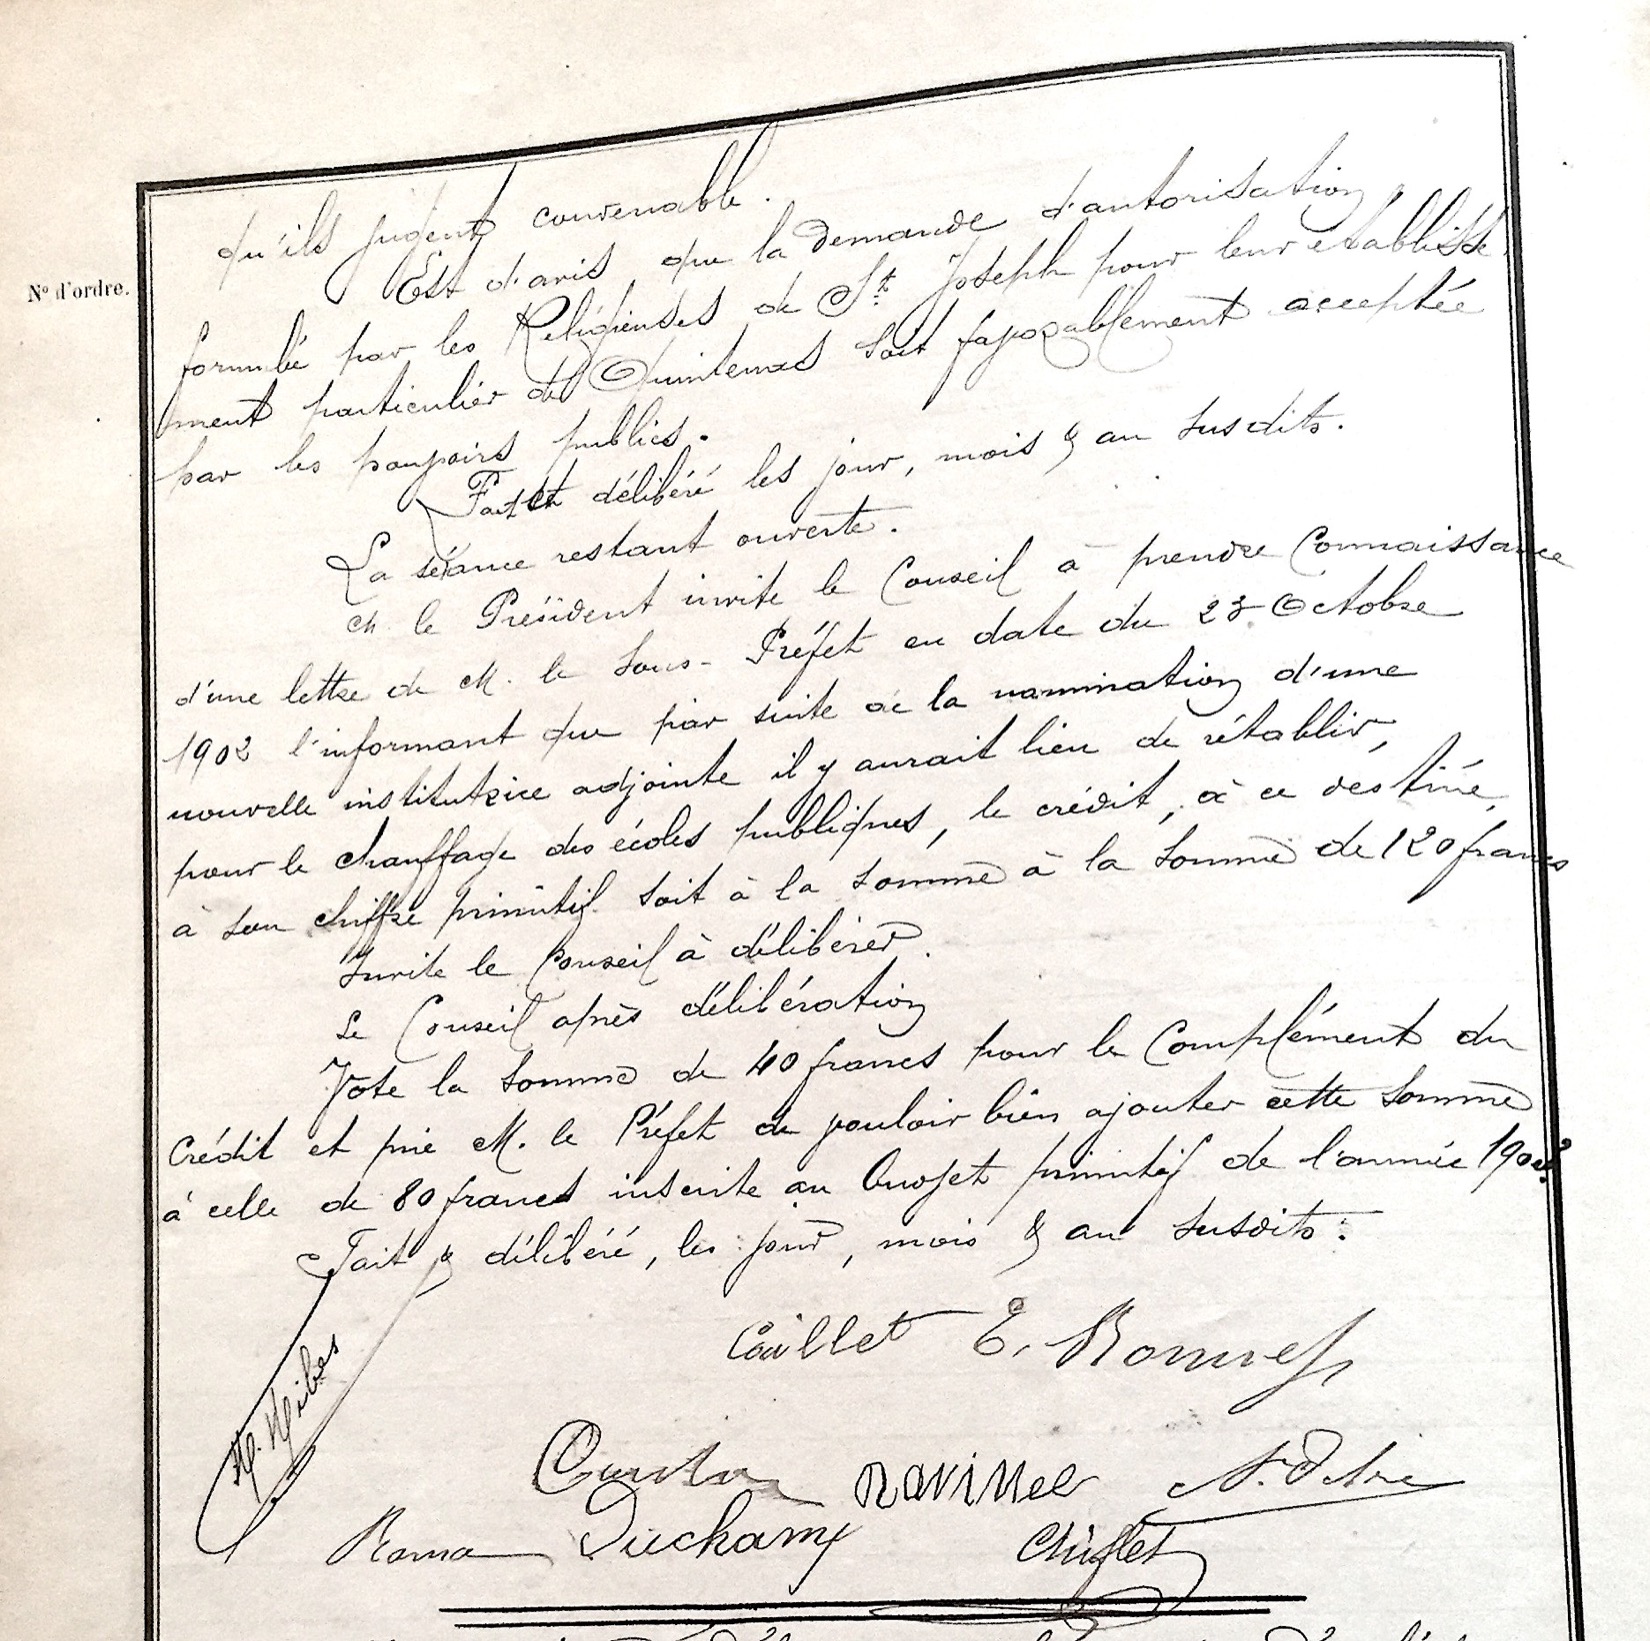 qu'ils jugent convenable.
Est d'avis que la demande d'autorisation
N° d'ordre.
formulée par les Religieuses de St Joseph pour leur établisse
ment particulier de Quintenas soit favorablement acceptée
par les pouvoirs publics.
Fait et délibéré les jour, mois & an susdits.
La séance restant ouverte.
M. le Président invite le Conseil à prendre Connaissance
d'une lettre de M. le Sous-Préfet en date du Octobre
1902 l'informant que par suite de la nomination d'une
nouvelle institutrice adjointe il y aurait lieu de rétablir,
pour le chauffage des écoles publiques, le crédit, à ce destiné,
à son chiffre primitif soit à la somme à la somme de 120 francs
Invite le Conseil à délibérer.
Le Conseil après délibération
Vote la somme de 40 francs pour le Complément du
Crédit et prie M. le Préfet de vouloir bien ajouter cette somme
à celle de 80 francs inscrite au Budget primitif de l'année
Fait & délibéré, les jour, mois & an susdits.
Caillet E.
Duchamp